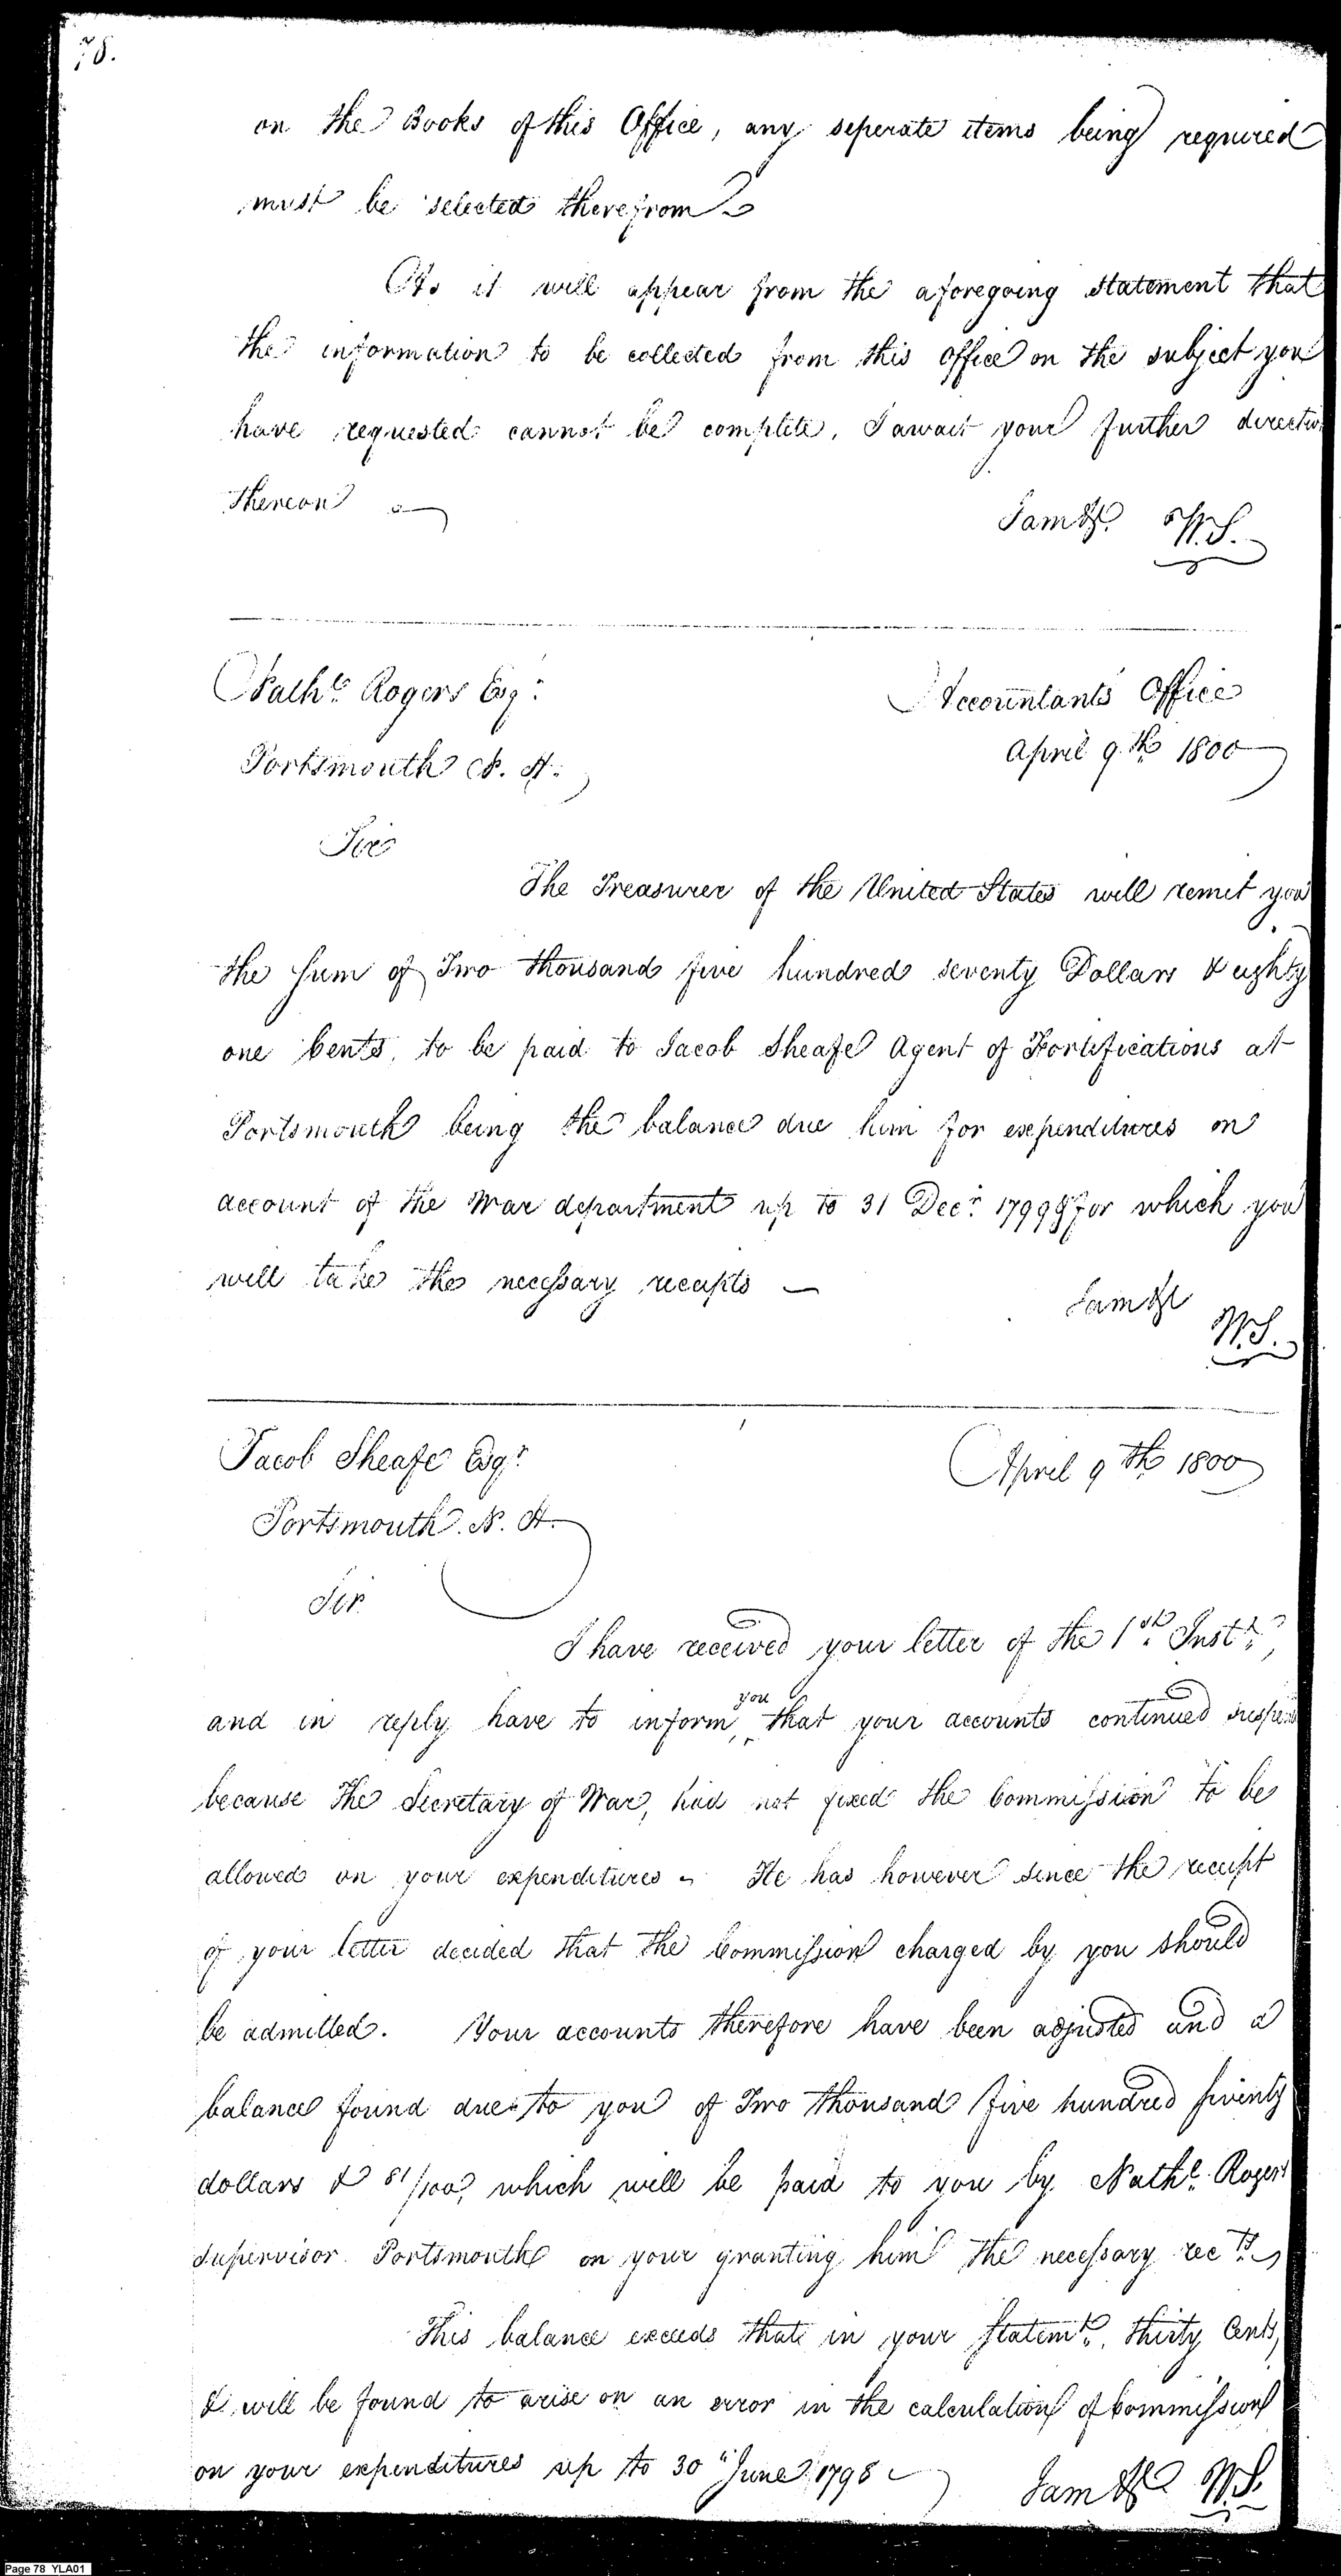 78.
on the Books of this Office, any seperate items being required
must be selected therefrom
As it will appear from the aforegoing statement that
the information to be collected from this office on the subject you
have requested cannot be complete, I await your further directio
thereon
I am &c. W.S.
Nathl. Rogers Esqr.
Accountants Office
Portsmouth N. H.
April 9.th 1800
Sir
The Treasurer of the United States will remit you
the sum of Two thousand five hundred seventy Dollars & eighty
one Cents, to be paid to Jacob Sheafe Agent of Fortifications at
Portsmouth being the balance due him for expenditures on
account of the War department up to 31 Decr. 1799 for which you
will take the necessary receipts
I am &c
W.S.
Jacob Sheafe Esqr.
April 9th 1800
Portsmouth. N. H.
Sir
I have received your letter of the 1st. Inst.,
and in reply have to inform, you that your accounts continued suspen
because the Secretary of War, had not fixed the Commission to be
allowed on your expenditures - He has however since the receipt
of your letter decided that the Commission charged by you should
be admitted. Your accounts therefore have been adjusted and a
balance found due to you of Two thousand five hundred seventy
dollars & 81/100, which will be paid to you by Nathl. Rogers
Supervisor Portsmouth on your granting him the necessary rects.
This balance exceeds that in your statemt., thirty Cents,
& will be found to arise on an error in the calculation of Commission
on your expenditures up to 30th June 1798
I am &c W.S.
Page 78 YLA01